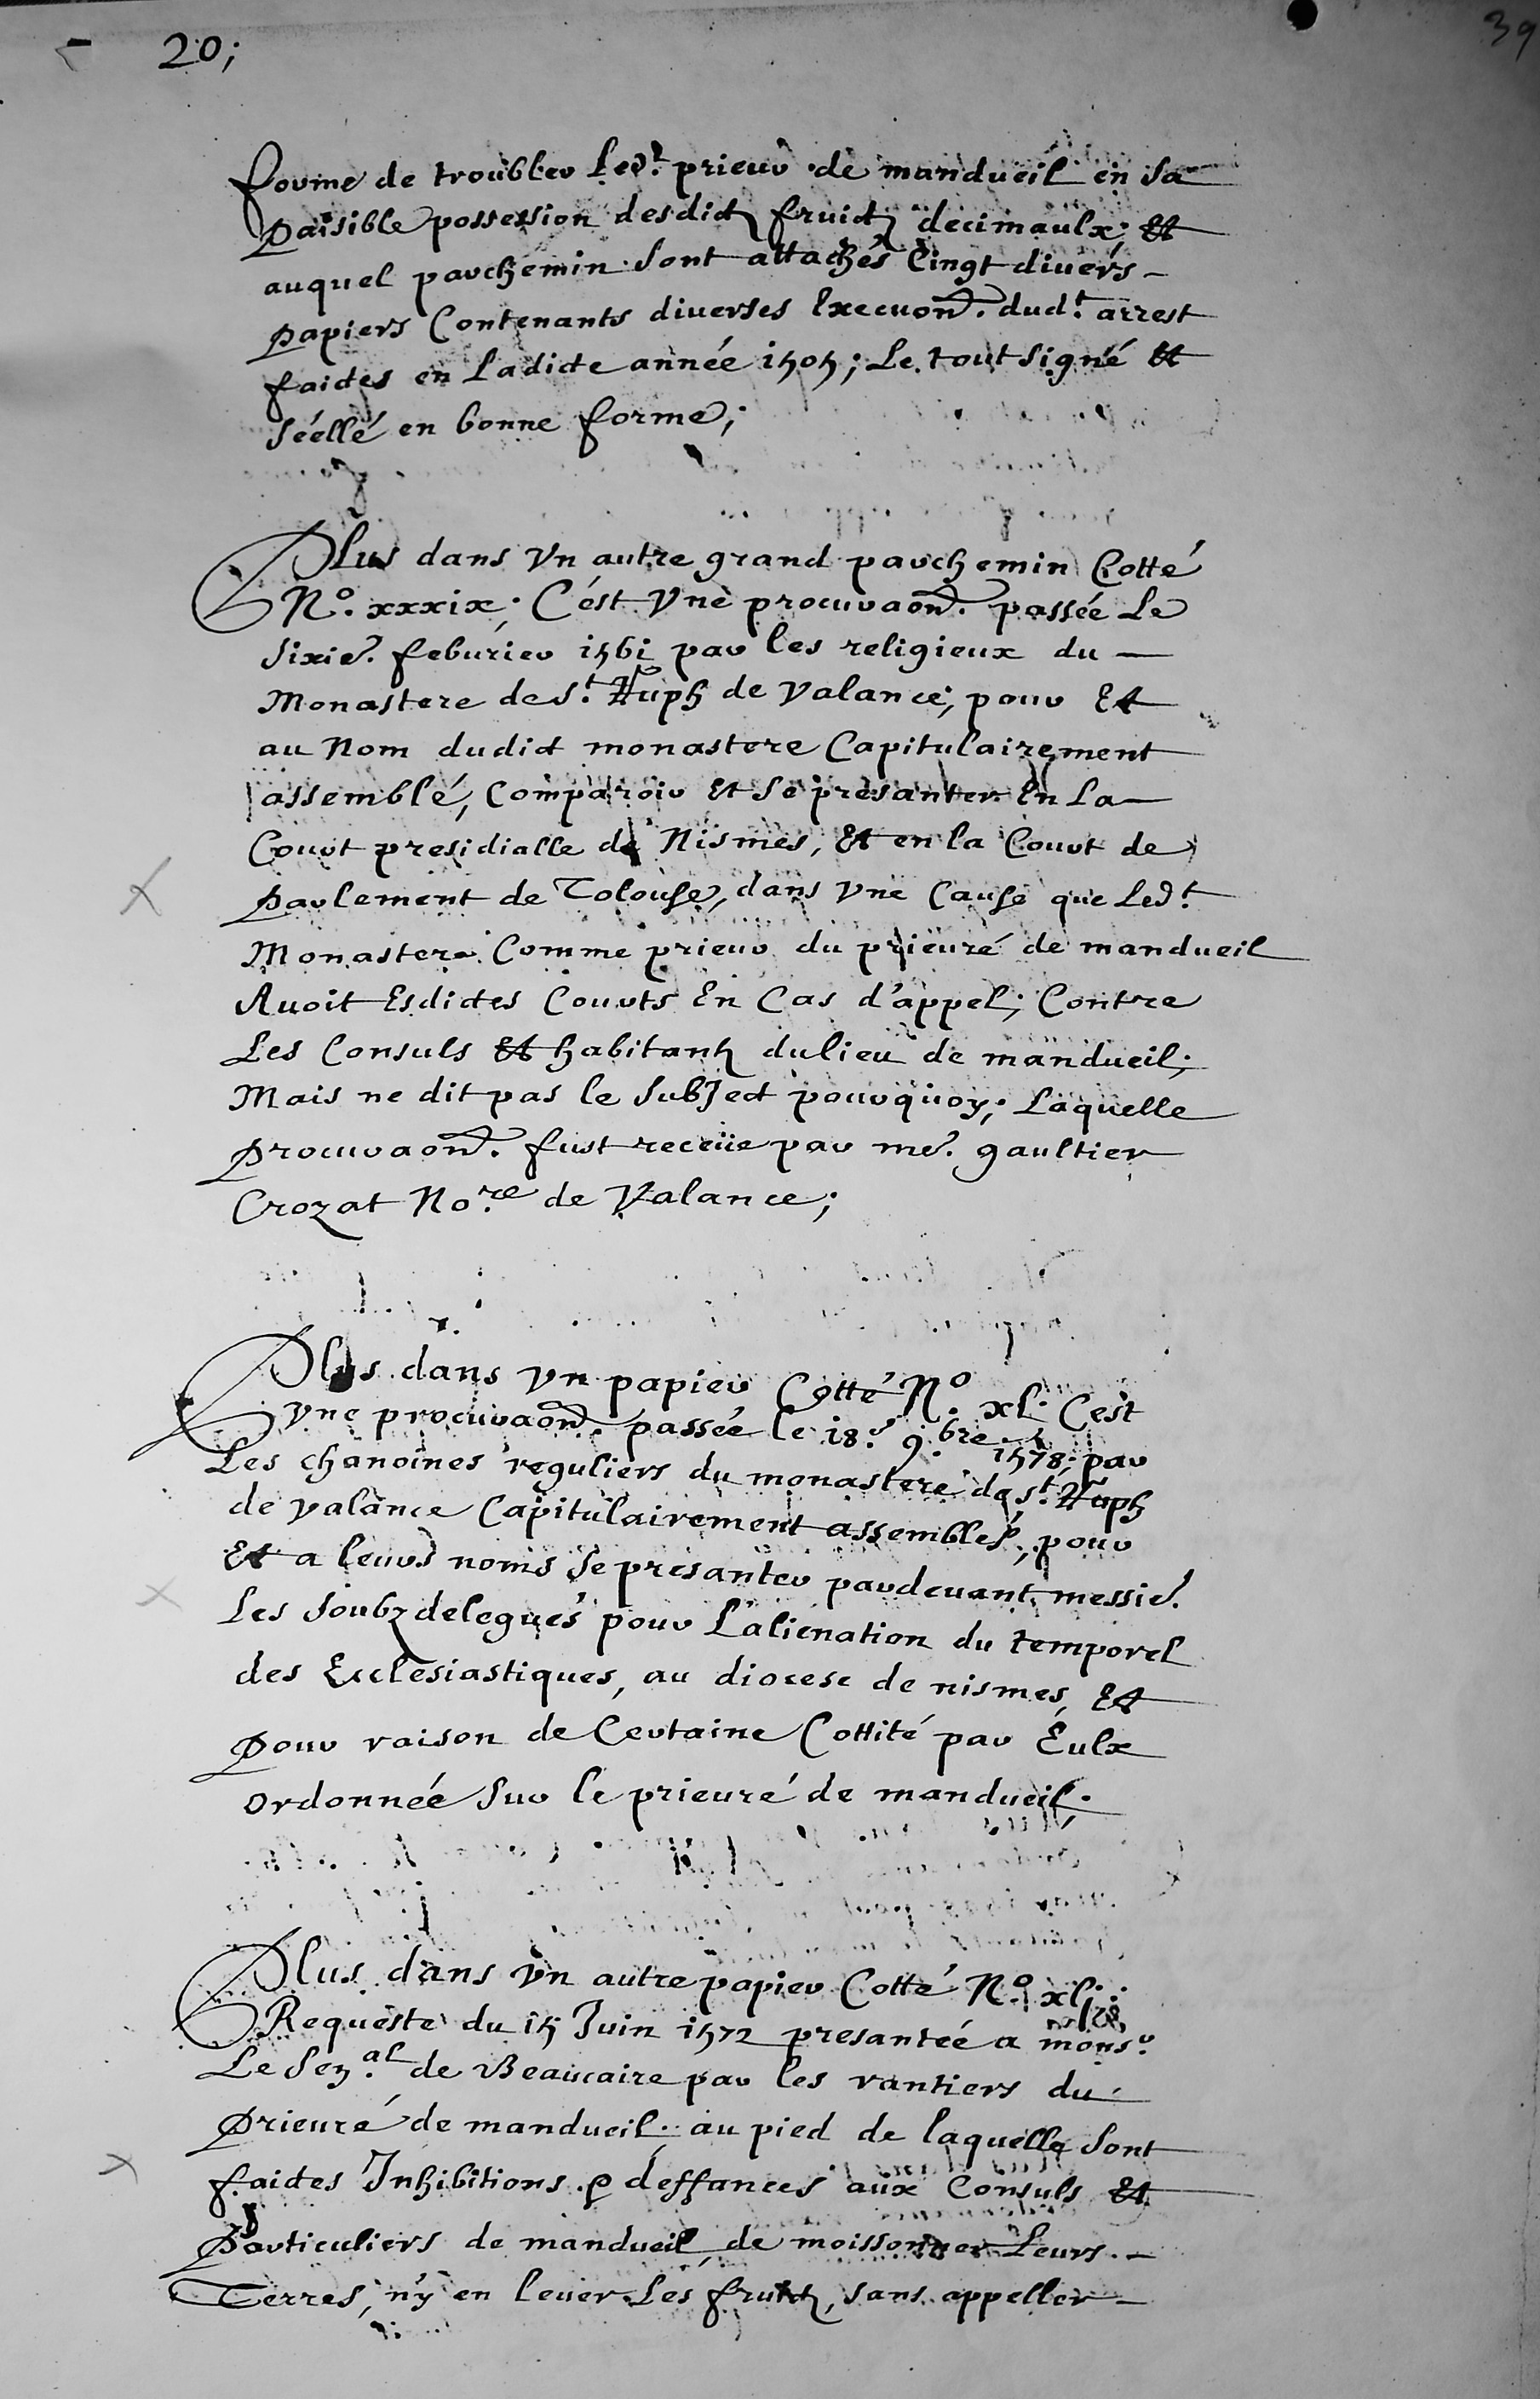 20;
39
forme de troubler Led.t prieur de mandueil en sa
paisible possession desdictz fruictz decimaulx; Et
auquel parchemin sont attachés Vingt diuers
papiers Contenants diuerses Execuon̄. dud.t arrest
faictes en Ladicte année 1505; Le tout signé Et
séellé en bonne forme;
Plus dans Vn autre grand parchemin Cotté
N.o xxxix; C'est Vne procuraon̄. passée Le
sixie. feburier 1561 par les religieux du
Monastere de s.t Ruph de Valance; pour Et
au Nom dudict monastere Capitulairement
assemblé, Comparoir Et se presanter En La
Court presidialle de Nismes, Et en la Court de
parlement de Tolouse, dans Vne Cause que Led.t
Monastere Comme prieur du prieuré de mandueil
Auoit Esdictes Courts En Cas d'appel; Contre
Les Consuls Et habitantz du lieu de mandueil;
Mais ne dit pas le subJect pourquoy; Laquelle
procuraon̄. fust receüe par me. gaultier
Crozat No.re de Valance;
Plus dans Vn papier Cotté N.o xL. C'est
Vne procuraon̄. passée le 18.e 9.bre 1578; par
Les chanoines reguliers du monastere de s.t Ruph
de Valance Capitulairement assemblés, pour
Et a leurs noms se presanter pardeuant messie.
Les soubz delegués pour L'alienation du temporel
des Ecclesiastiques, au diocese de nismes, Et
pour raison de Certaine Cottité par Eulx
ordonnée sur le prieuré de mandueil;
Plus dans Vn autre papier Cotté N.o xli;
Requeste du 15 Juin 1572 presantée a mons.r
Le Sen.al de Beaucaire par les rantiers du
prieuré de mandueil; au pied de laquelle sont
faictes Inhibitions & deffances aux Consuls Et
particuliers de mandueil, de moissonner Leurs
Terres, n'y en leuer Les fruictz, sans appeller